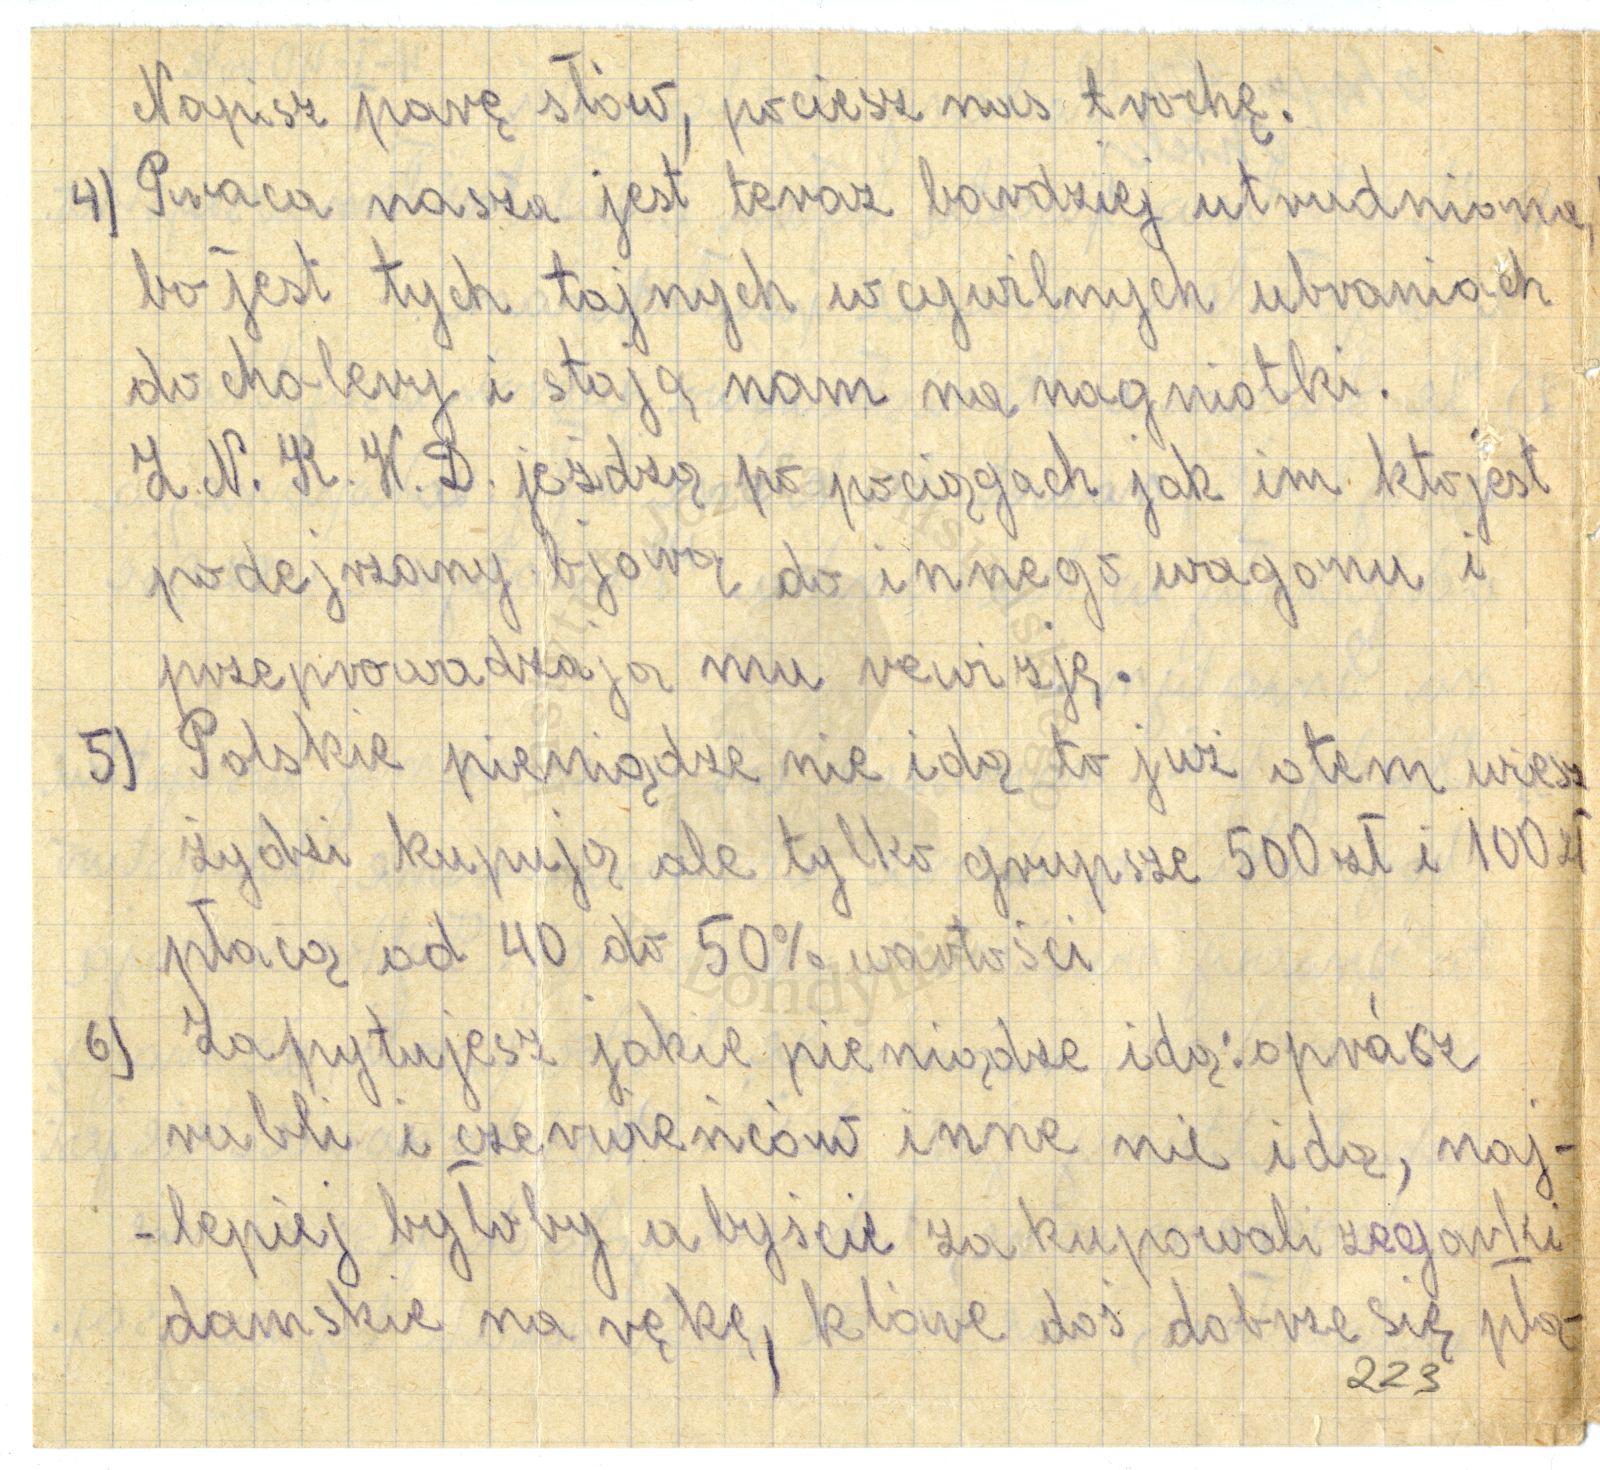 Napisz parę słów, pociesz nas trochę.
4) Praca nasza jest teraz bardziej utrudniona,
bo jest tych tajnych w cywilnych ubraniach
do cholery i stają nam na nagniotki.
Z. N. K. W. D. jeżdżą po pociągach jak im ktojest
podejrzany bjorą do innego wagonu i
przeprowadzają mu rewizję.
5) Polskie pieniądze nie idą to już otem wiesz
żydzi kupują ale tylko grupsze 500 zł i 100 zł
płacą od 40 do 50% wartości
6) Zapytujesz jakie pieniądze idą: oprócz
rubli i czerwieńców inne nie idą, naj-
-lepiej byłoby abyście zakupowali zegarki
damskie na rękę, które doś dobrze się pła-
223
Londyn